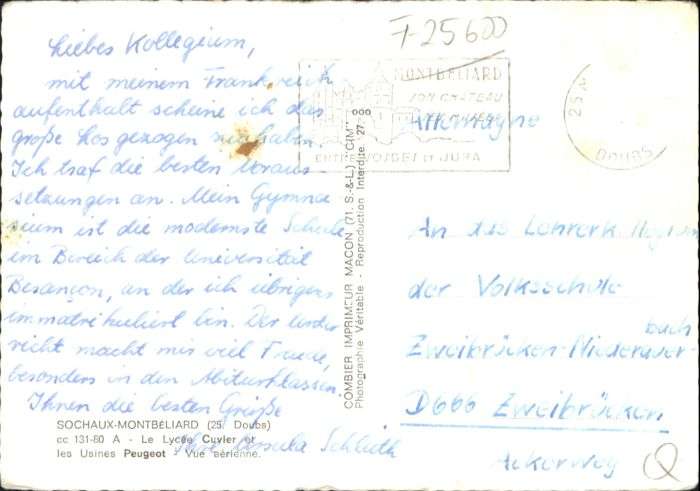 F-25600
Liebes Kollegium,
mit meinem Frankreich
aufenthalt scheine ich das
große Los gezogen zu haben.
Ich traf die besten Voraus
setzungen an. Mein Gymna
sium ist die modernste Schule
im Bereich der Universität
Besançon, an der ich übrigens
immatrikuliert bin. Der Unter
richt macht mir viel Freude,
besonders in den Abiturklassen.
Ihnen die besten Grüße
Ihre Ursula
SOCHAUX-MONTBELIARD (25. Doubs)
cc 131-80 A - Le Lycée Cuvier et
les Usines Peugeot - Vue aérienne.
COMBIER IMPRIMEUR MACON (71. S.-&-L.) "CIM"
Photographie Véritable - Reproduction Interdite
MONTBELIARD
SON CHATEAU
ENTRE VOSGES ET JURA
25
DOUBS
Allemagne
An das Lehrerkollegium
der Volksschule
Zweibrücken-Niederauer-
bach
D666 Zweibrücken
Ackerweg